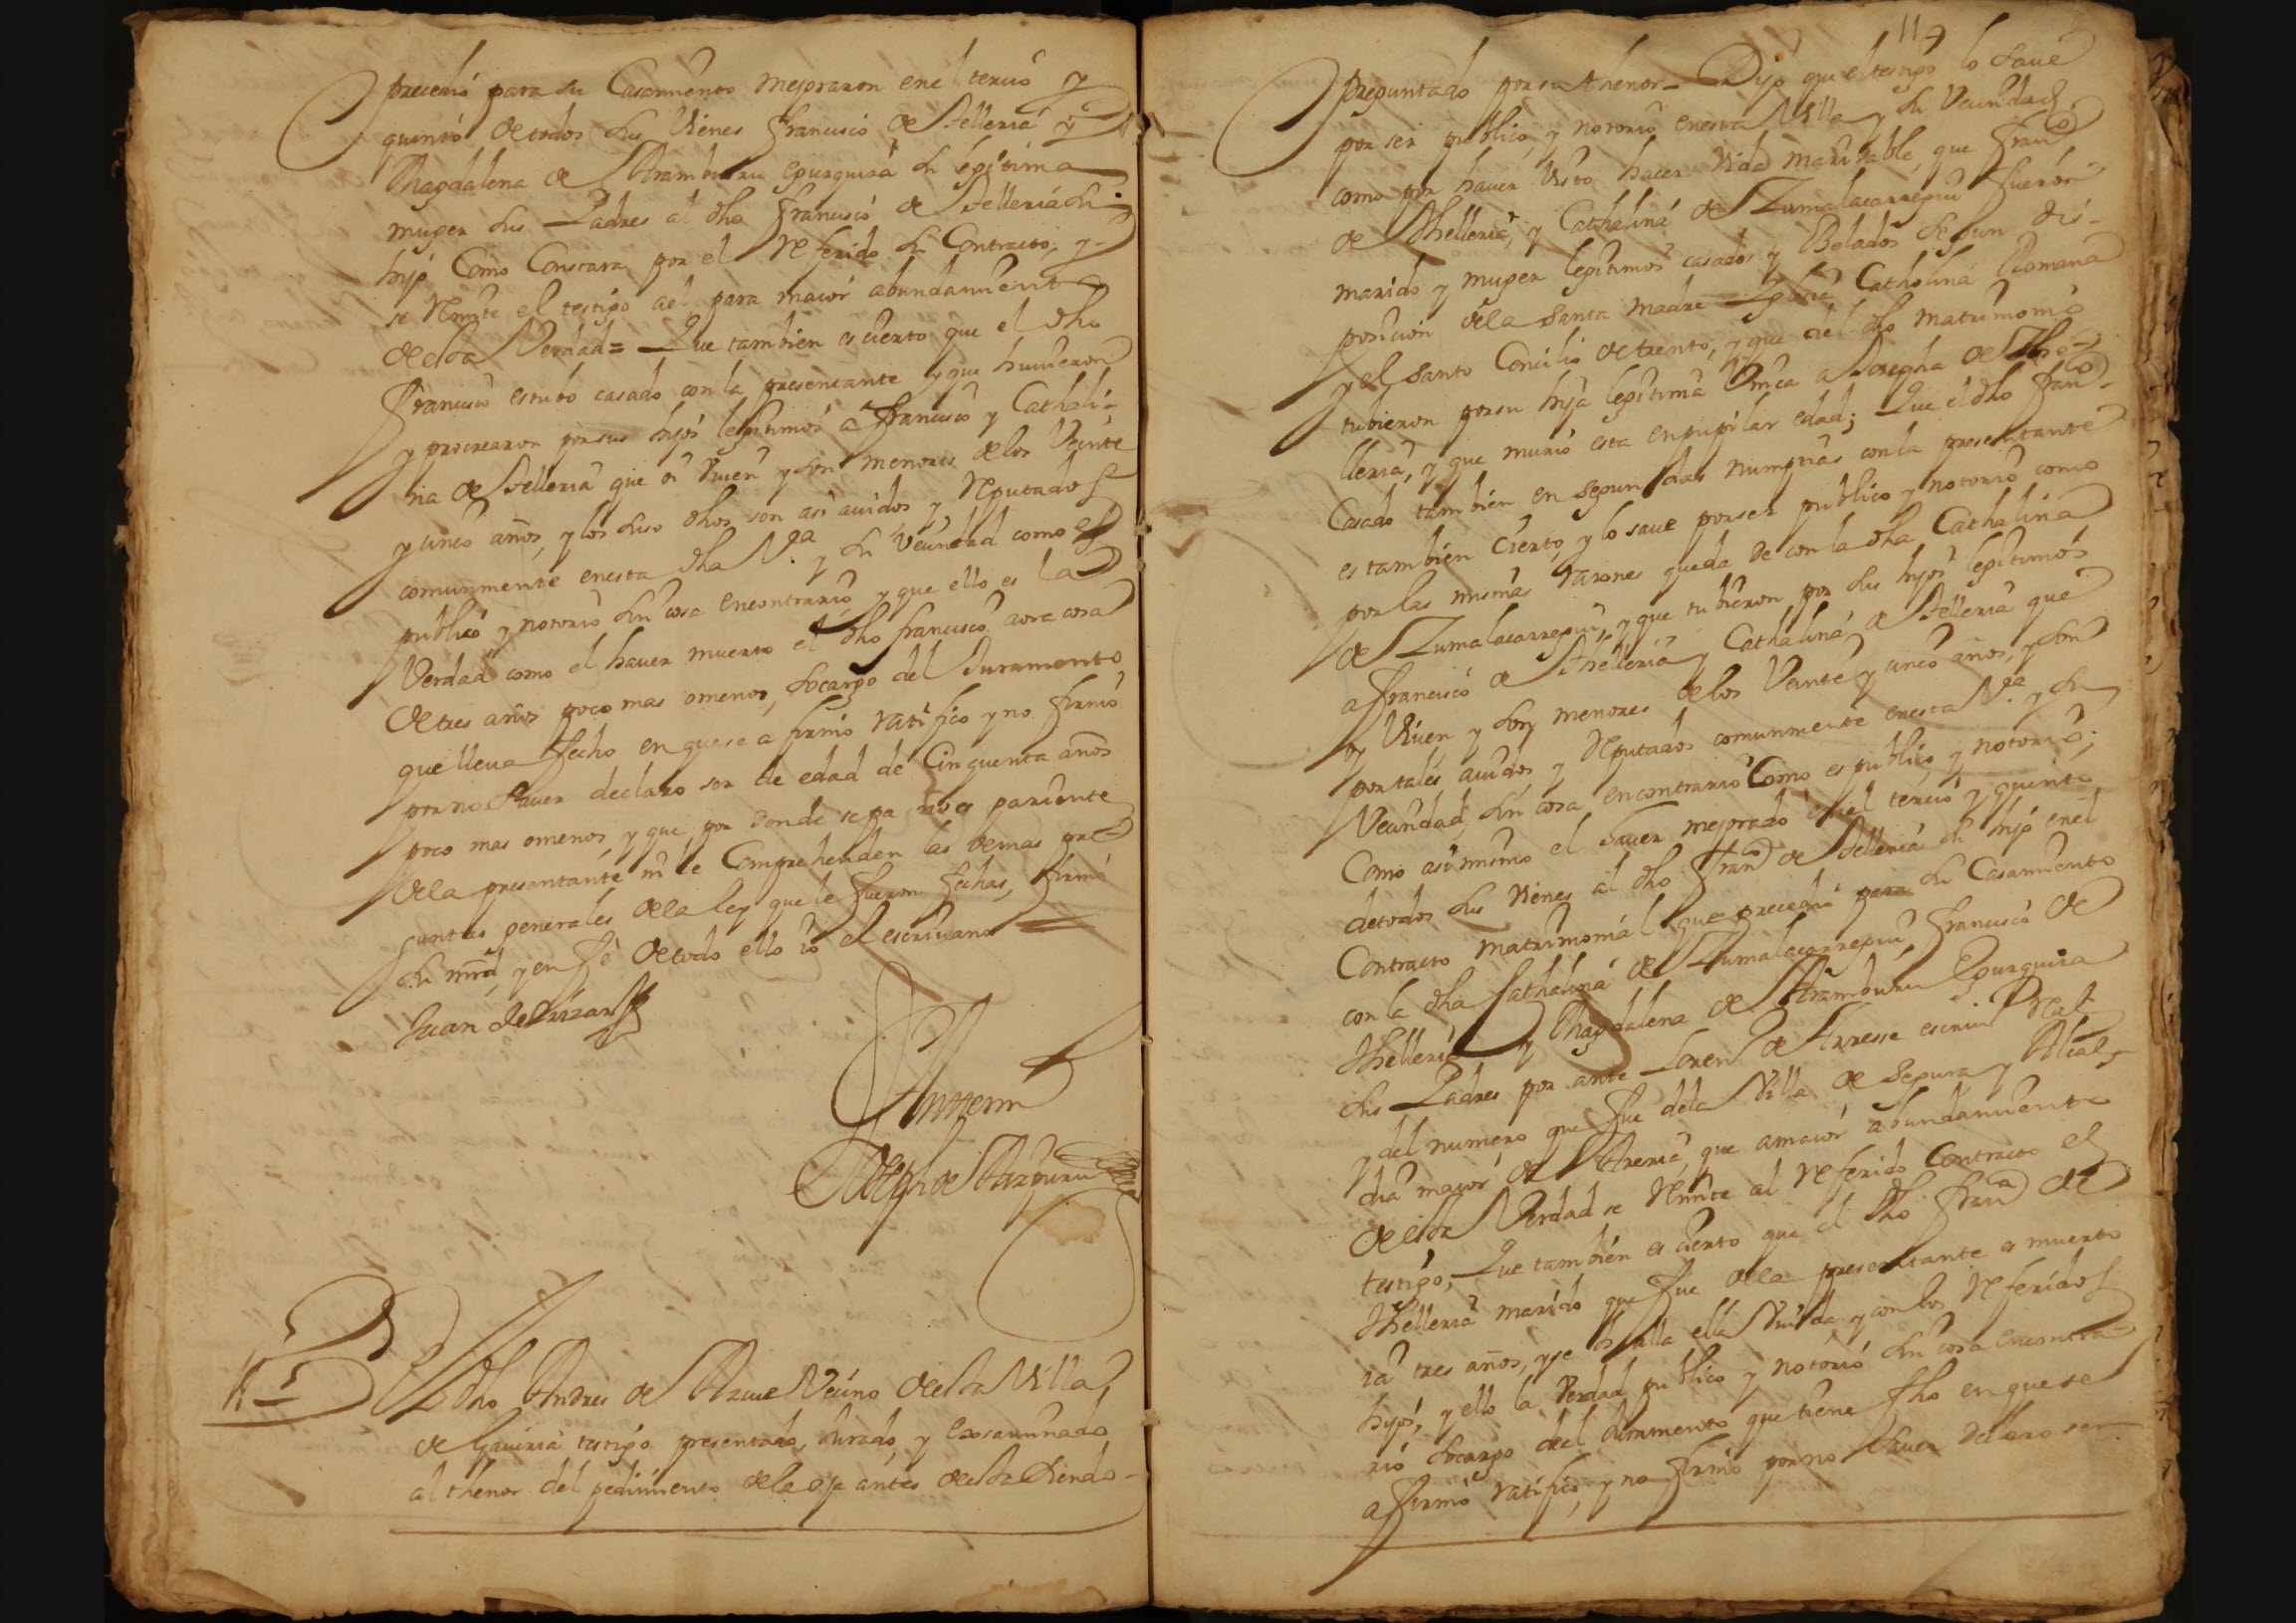 precedio para su Casamiento mejoraron en el tercio y
quinto de todos sus Vienes Francisco de Telleria y
Magdalena de Aramburu epurguiza su lexitima
muger sus Padres al dho Francisco de Telleria su
hijo Como Constara por el referido su Contracto, y
se remite el testigo ael para maior abundamiento
de esta Verdad = Que tambien es cierto que el dho
Francisco estubo casado con la presentante y que hubieron
y procrearon por sus hijos lexitimos a Francisco y Cathali-
na de Telleria que oi viuen y son menores de los Veinte
y cinco años, y los suso dhos son asi auidos y reputados
comunmente en esta dha Va. y su Vecindad como es
publico y notorio sin cosa en contrario y que ello es la
Verdad como el hauer muerto el dho Francisco aora cosa
de tres años poco mas omenos, socargo del Juramento
que lleua fecho en que se afirmo ratifico y no firmo
por no Sauer declaro ser de edad de Cinquenta años
poco mas omenos, y que por donde sepa no es pariente
de la presentante ni le Comprehenden las demas pre-
guntas generales de la ley que le fueron fechas, firmo
su mrd, y en fe de todo ello io el escriuano
Juan de
Ante mi
Joseph de Aizpuru
El dho Andres de Azcue Vecino de esta Villa
de Gauiria testigo presentado, Jurado, y Exsaminado
al thenor del pedimiento de la oja antes de esta siendo
119
Preguntado por su thenor = Dijo que el testigo lo saue
por ser publico, y notorio en esta Villa y su Vecindad
como por hauer visto hacer vida maridable, que Franco
de Thelleria, y Cathalina de Zumalacarregui fueron
marido y muger lexitimos casados y Belados segun dis-
posicion de la Santa madre Iglesia Catholica Romana
y el Santo Concilio de trento, y que del dho matrimonio
tubieron por su hija lexitima Unica a Josepha de The-
lleria, y que murio esta en pupilar edad; Que el dho Franco
Casado tambien en segundas numpcias con la presentante
es tambien cierto, y lo saue por ser publico y notorio como
por las mismas razones queda de con la dha Cathalina
de Zumalacarregui, y que tubieron por sus hijos lexitimos
a Francisco de Thelleria y Cathalina de Telleria que
oy Viuen y son menores de los Veinte y cinco años, y son
por tales auidos y reputados comunmente en esta Va. y su
Vecindad, sin cosa en contrario Como es publico, y notorio;
Como asi mismo el hauer mejorado en el tercio y quinto
de todos sus Vienes al dho Franco de Telleria su hijo en el
Contracto matrimonial que precedio para su Casamiento
con la dha Cathalina de Zumalacarregui, Francisco de
Thelleria y Magdalena de Aramburu Epurguiza
sus Padres por ante Loren de Arresse escriuo Real
y del numero que fue de la Villa de Segura y Alcal
dia maior de Areria, que a maior abundamiento
de esta Verdad se remite al referido Contracto el
testigo; Que tambien es cierto que el dho Franco de
Thelleria marido que fue de la presentante es muerto
ia tres años, y se halla ella Viuda y con los referidos
hijos, y ello la Verdad publico y notorio sin cosa en contra-
rio socargo del Juramento que tiene fho en que se
afirmo ratifico, y no firmo por no Sauer declaro ser